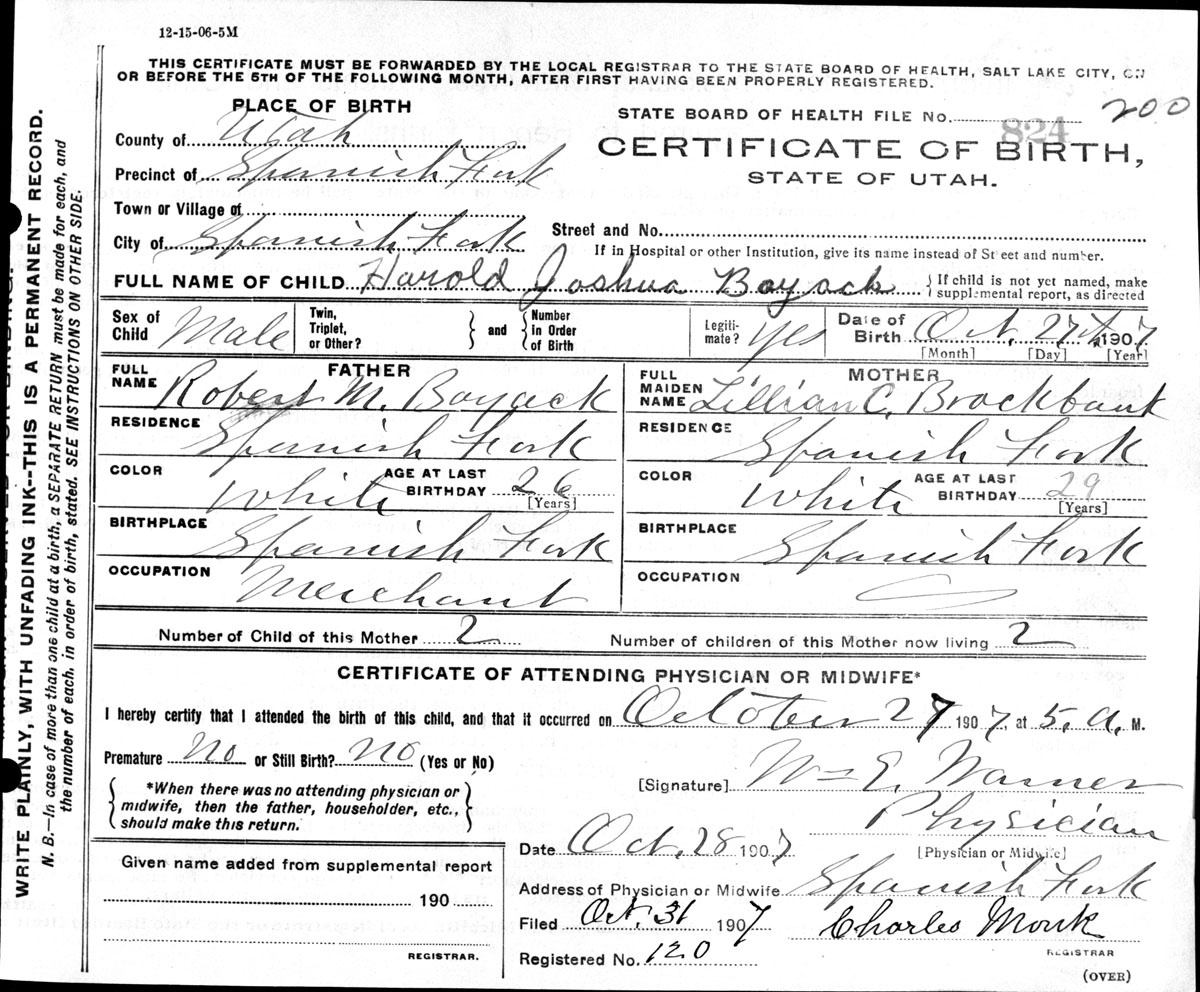 12-15-06-5M
THIS CERTIFICATE MUST BE FORWARDED BY THE LOCAL REGISTRAR TO THE STATE BOARD OF HEALTH, SALT LAKE CITY, ON
OR BEFORE THE 5TH OF THE FOLLOWING MONTH, AFTER FIRST HAVING BEEN PROPERLY REGISTERED.
WRITE PLAINLY, WITH UNFADING INK--THIS IS A PERMANENT RECORD.
N. B.—In case of more than one child at a birth, a SEPARATE RETURN must be made for each, and
the number of each, in order of birth, stated. SEE INSTRUCTIONS ON OTHER SIDE.
PLACE OF BIRTH
County of Utah
Precinct of Spanish Fork
Town or Village of
City of Spanish Fork
STATE BOARD OF HEALTH FILE No. 824 200
CERTIFICATE OF BIRTH,
STATE OF UTAH.
Street and No.
If in Hospital or other Institution, give its name instead of Street and number.
FULL NAME OF CHILD Harold Joshua Boyack
If child is not yet named, make
supplemental report, as directed
Sex of Child Male
Twin, Triplet, or Other? and Number in Order of Birth
Legitimate? Yes
Date of Birth Oct. 27th 1907
[Month] [Day] [Year]
FATHER
FULL NAME Robert M. Boyack
RESIDENCE Spanish Fork
COLOR White AGE AT LAST BIRTHDAY 26 [Years]
BIRTHPLACE Spanish Fork
OCCUPATION Merchant
MOTHER
FULL MAIDEN NAME Lillian C. Brockbank
RESIDENCE Spanish Fork
COLOR White AGE AT LAST BIRTHDAY 29 [Years]
BIRTHPLACE Spanish Fork
OCCUPATION
Number of Child of this Mother 2 Number of children of this Mother now living 2
CERTIFICATE OF ATTENDING PHYSICIAN OR MIDWIFE*
I hereby certify that I attended the birth of this child, and that it occurred on October 27 1907, at 5. a. M.
Premature No or Still Birth? No (Yes or No)
*When there was no attending physician or
midwife, then the father, householder, etc.,
should make this return.
[Signature] Wm E. Warner
Physician
[Physician or Midwife]
Date Oct. 28 1907
Address of Physician or Midwife Spanish Fork
Filed Oct. 31 1907 Charles Monk
REGISTRAR
Registered No. 120
(OVER)
Given name added from supplemental report
190
REGISTRAR.